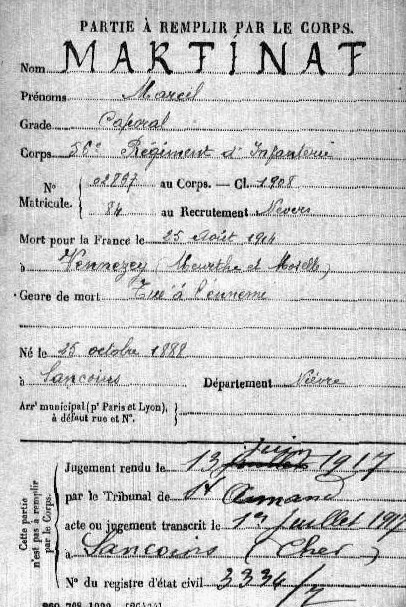 PARTIE À REMPLIR PAR LE CORPS.
Nom MARTINAT
Prénoms Marcel
Grade Caporal
Corps 56e Régiment d'Infanterie
No Matricule. { 02897 au Corps. — Cl. 1908
84 au Recrutement Nevers
Mort pour la France le 25 Août 1914
à Vennezey (Meurthe et Moselle)
Genre de mort Tué à l'ennemi
Né le 25 octobre 1888
à Sancoins Département Nièvre
Arrt municipal (pr Paris et Lyon), à défaut rue et No. }
Cette partie n'est pas à remplir par le Corps.
Jugement rendu le 13 juin 1917
par le Tribunal de St Amand
acte ou jugement transcrit le 1er Juillet 1917
à Sancoins (Cher)
No du registre d'état civil 3334/7